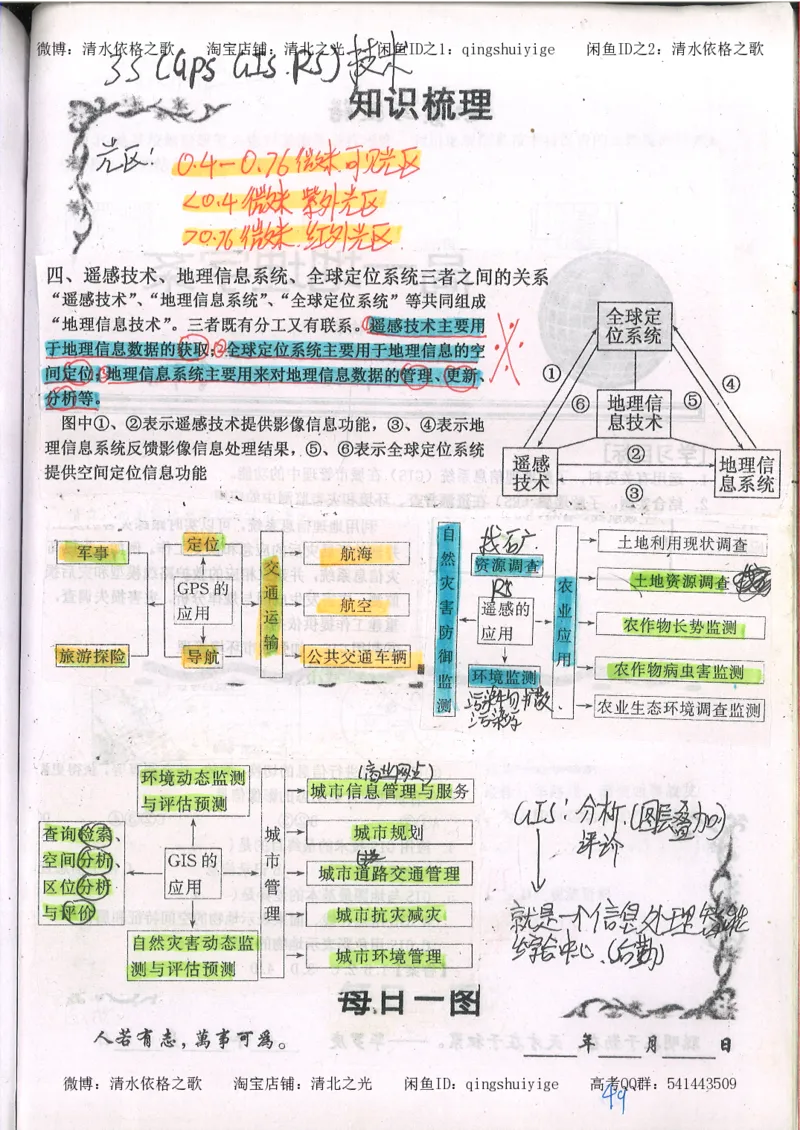 微博：清水依格之歌 淘宝店铺：清北之光 闲鱼ID之1：qingshuiyige 闲鱼ID之2：清水依格之歌
3S(GPS GIS.RS)技术
知识梳理
光区：
0.4—0.76微米可见光区
<0.4微米 紫外光区
>0.76微米 红外光区
四、遥感技术、地理信息系统、全球定位系统三者之间的关系
“遥感技术”、“地理信息系统”、“全球定位系统”等共同组成
“地理信息技术”。三者既有分工又有联系。①遥感技术主要用
于地理信息数据的获取；②全球定位系统主要用于地理信息的空
间定位；③地理信息系统主要用来对地理信息数据的管理、更新、
分析等。
图中①、②表示遥感技术提供影像信息功能，③、④表示地
理信息系统反馈影像信息处理结果，⑤、⑥表示全球定位系统
提供空间定位信息功能
全球定
位系统
①
④
⑥
地理信
息技术
⑤
遥感
技术
②
③
地理信
息系统
军事
定位
GPS的
应用
旅游探险
导航
交通运输
航海
航空
公共交通车辆
自然灾害防御监测
找石广
资源调查
RS
遥感的
应用
环境监测
农业应用
土地利用现状调查
土地资源调查
农作物长势监测
农作物病虫害监测
农业生态环境调查监测
环境动态监测
与评估预测
查询检索、
空间分析、
区位分析
与评价
GIS的
应用
自然灾害动态监
测与评估预测
城市管理
(商业网点)
城市信息管理与服务
城市规划
城市道路交通管理
城市抗灾减灾
城市环境管理
GIS：分析.(图层叠加)
评价
就是一个信息处理智能
综合中心.(后勤)
每日一图
人若有志，萬事可爲。
年 月 日
微博：清水依格之歌 淘宝店铺：清北之光 闲鱼ID：qingshuiyige 高考QQ群：541443509
49